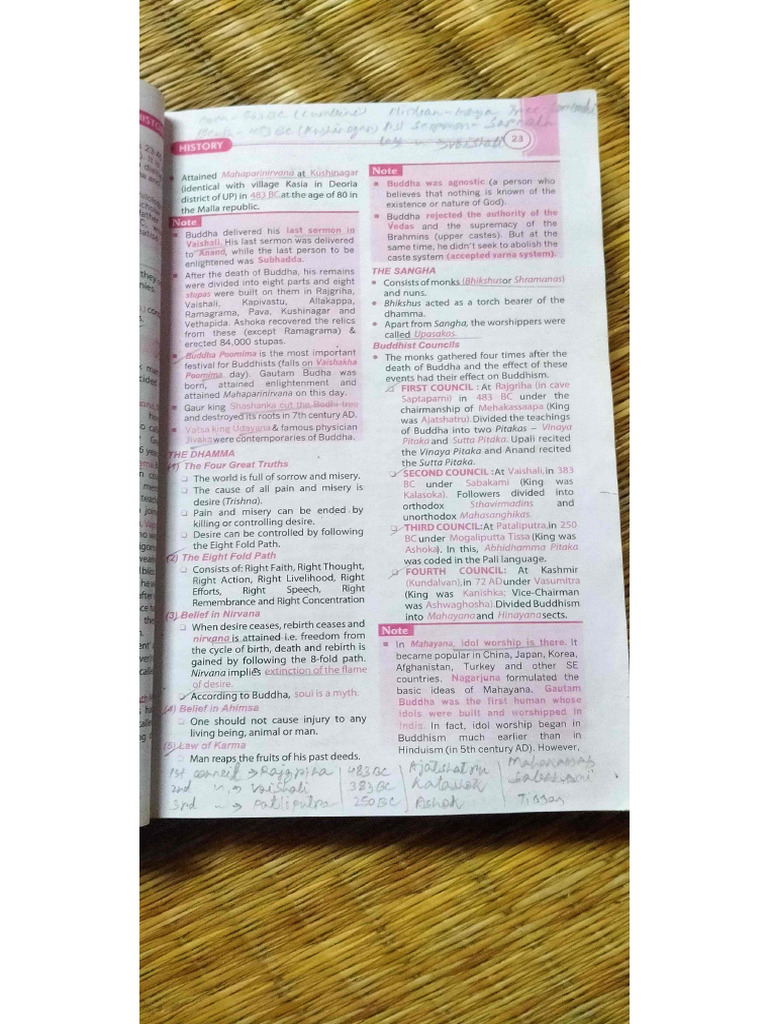 Born - 563 BC (Lumbini)
HISTORY
23
Attained Mahaparinirvana at Kushinagar
(identical with village Kasia in Deoria
district of UP) in 483 BC at the age of 80 in
the Malla republic.
Note
Buddha delivered his last sermon in
Vaishali. His last sermon was delivered
to Anand, while the last person to be
enlightened was Subhadda.
After the death of Buddha, his remains
were divided into eight parts and eight
stupas were built on them in Rajgriha,
Vaishali, Kapivastu, Allakappa,
Ramagrama, Pava, Kushinagar and
Vethapida. Ashoka recovered the relics
from these (except Ramagrama) &
erected 84,000 stupas.
Buddha Poornima is the most important
festival for Buddhists (falls on Vaisbakha
Poornima day). Gautam Budha was
born, attained enlightenment and
attained Mahaparinirvana on this day.
Gaur king Shashanka cut the Bodhi tree
and destroyed its roots in 7th century AD.
Vatsa king Udayana & famous physician
Jivaka were contemporaries of Buddha.
THE DHAMMA
(1) The Four Great Truths
The world is full of sorrow and misery.
The cause of all pain and misery is
desire (Trishna).
Pain and misery can be ended by
killing or controlling desire.
Desire can be controlled by following
the Eight Fold Path.
(2) The Eight Fold Path
Consists of: Right Faith, Right Thought,
Right Action, Right Livelihood, Right
Efforts, Right Speech, Right
Remembrance and Right Concentration
(3) Belief in Nirvana
When desire ceases, rebirth ceases and
nirvana is attained i.e. freedom from
the cycle of birth, death and rebirth is
gained by following the 8-fold path.
Nirvana implies extinction of the flame
of desire.
According to Buddha, soul is a myth.
(4) Belief in Ahimsa
One should not cause injury to any
living being, animal or man.
(5) Law of Karma
Man reaps the fruits of his past deeds.
Note
Buddha was agnostic (a person who
believes that nothing is known of the
existence or nature of God).
Buddha rejected the authority of the
Vedas and the supremacy of the
Brahmins (upper castes). But at the
same time, he didn't seek to abolish the
caste system (accepted varna system).
THE SANGHA
Consists of monks (Bhikshus or Shramanas)
and nuns.
Bhikshus acted as a torch bearer of the
dhamma.
Apart from Sangha, the worshippers were
called Upasakos.
Buddhist Councils
The monks gathered four times after the
death of Buddha and the effect of these
events had their effect on Buddhism.
FIRST COUNCIL : At Rajgriha (in cave
Saptaparni) in 483 BC under the
chairmanship of Mehakassaapa (King
was Ajatshatru). Divided the teachings
of Buddha into two Pitakas – Vinaya
Pitaka and Sutta Pitaka. Upali recited
the Vinaya Pitaka and Anand recited
the Sutta Pitaka.
SECOND COUNCIL : At Vaishali, in 383
BC under Sabakami (King was
Kalasoka). Followers divided into
orthodox Sthavirmadins and
unorthodox Mahasanghikas.
THIRD COUNCIL: At Pataliputra, in 250
BC under Mogaliputta Tissa (King was
Ashoka). In this, Abhidhamma Pitaka
was coded in the Pali language.
FOURTH COUNCIL: At Kashmir
(Kundalvan), in 72 AD under Vasumitra
(King was Kanishka; Vice-Chairman
was Ashwaghosha). Divided Buddhism
into Mahayana and Hinayana sects.
Note
In Mahayana, idol worship is there. It
became popular in China, Japan, Korea,
Afghanistan, Turkey and other SE
countries. Nagarjuna formulated the
basic ideas of Mahayana. Gautam
Buddha was the first human whose
idols were built and worshipped in
India. In fact, idol worship began in
Buddhism much earlier than in
Hinduism (in 5th century AD). However,
1st council → 483 BC
2nd → Vaishali 383 BC Kalashok
3rd → Patliputra 250 BC Ashok